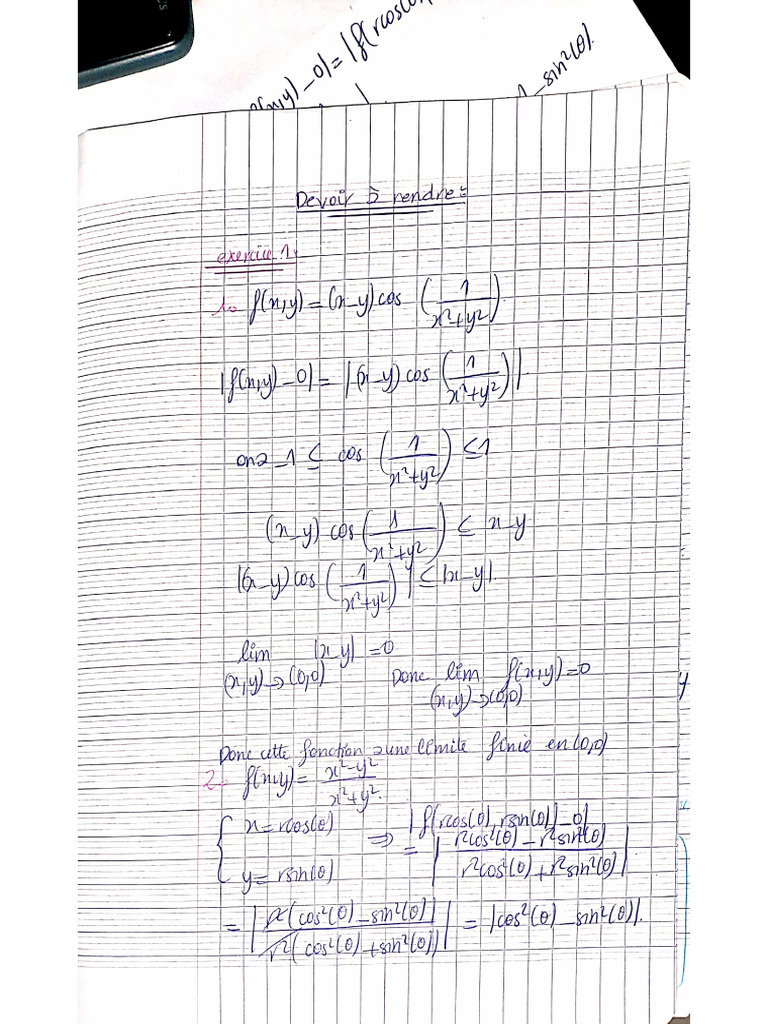 (x,y) - 0| = |f(rcos(θ)
1 - sin²(θ)|.
Devoir à rendre:
exercice 1:
1. f(x,y) = (x-y) cos (1/(x²+y²))
|f(x,y) - 0| = |(x-y) cos (1/(x²+y²))|
on a -1 ≤ cos (1/(x²+y²)) ≤ 1
(x-y) cos (1/(x²+y²)) ≤ x-y
|(x-y) cos (1/(x²+y²))| ≤ |x-y|.
lim |x-y| = 0
(x,y)→(0,0)
Donc lim f(x,y) = 0
(x,y)→(0,0)
Donc cette fonction a une limite finie en (0,0)
2. f(x,y) = (x²-y²)/(x²+y²).
{ x = rcos(θ)
y = rsin(θ)
⇒ |f(rcos(θ), rsin(θ)) - 0|
= |(r²cos²(θ) - r²sin²(θ))/(r²cos²(θ) + r²sin²(θ))|
= |r²(cos²(θ) - sin²(θ))/r²(cos²(θ) + sin²(θ))| = |cos²(θ) - sin²(θ)|.